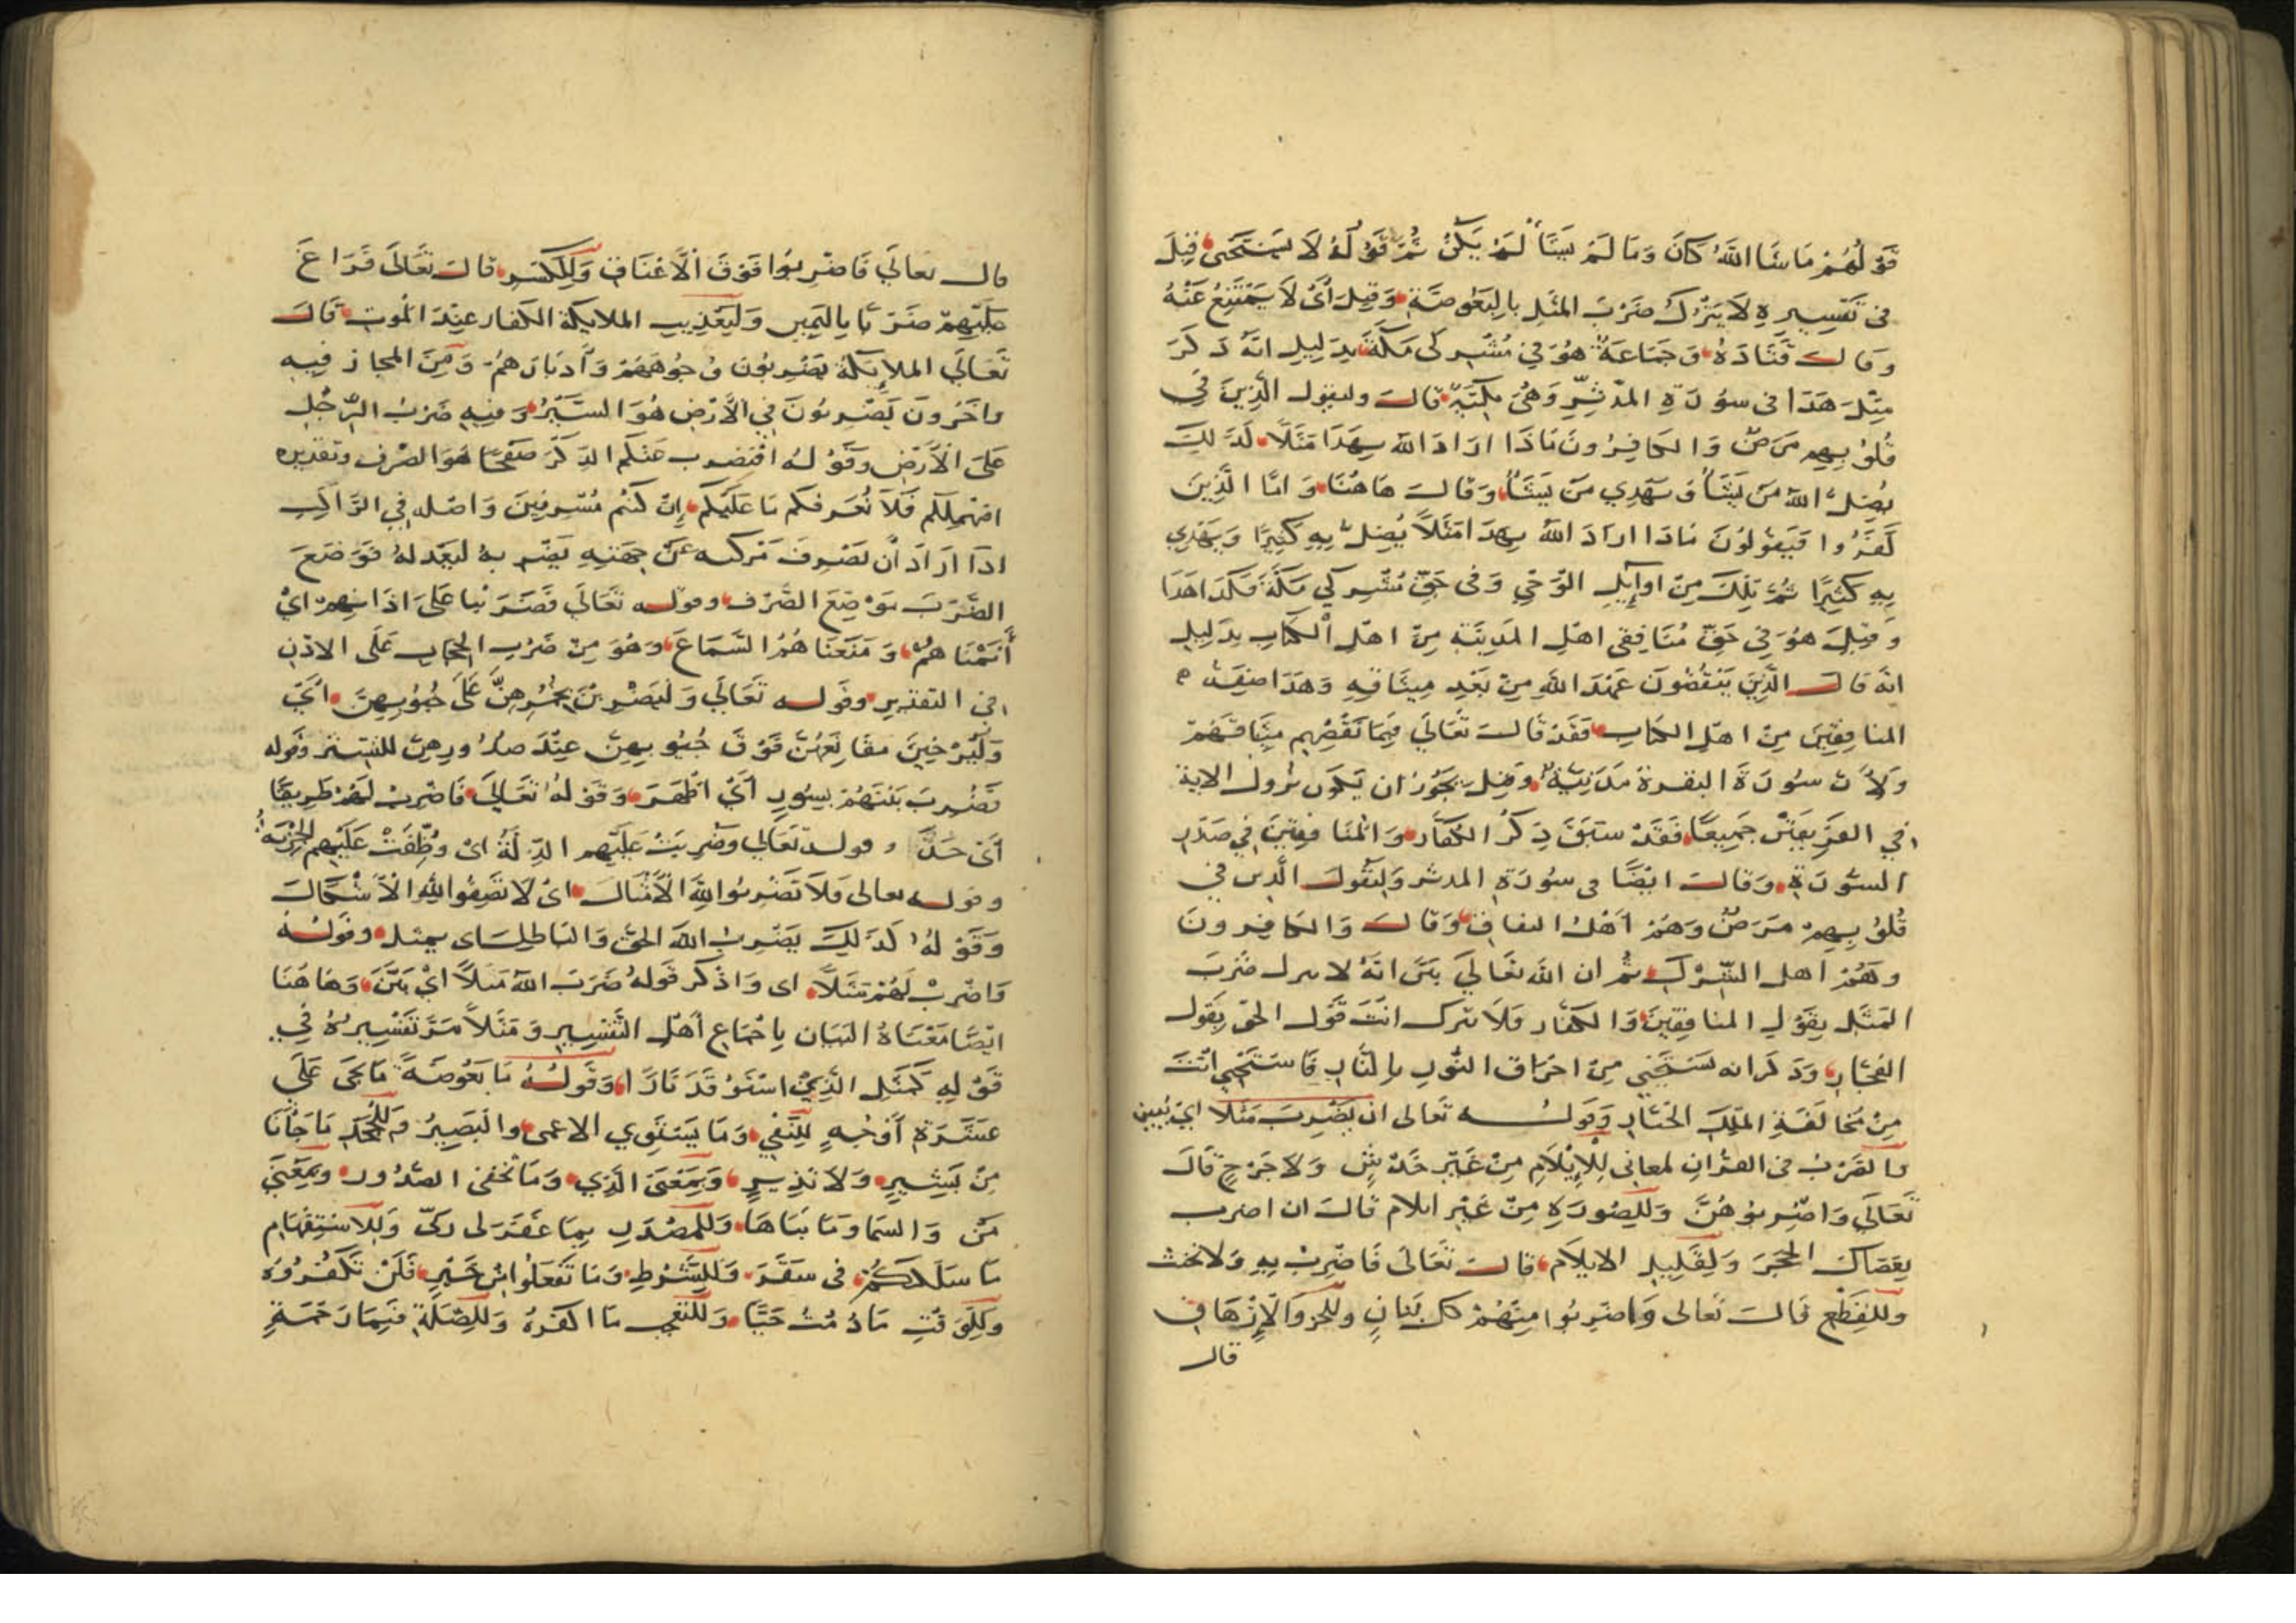 قَوْلُهُمْ مَا شَا اللَّهُ كَانَ وَمَا لَمْ يَشَأْ لَمْ يَكُنْ ثُمَّ قَوْلُهُ لَا يَسْتَحْيِ قِيلَ
في تَفْسِيرِهِ لَا يَتْرُكُ ضَرْبَ المَثَلِ بِالبَعُوضَةِ وَقِيلَ أَيْ لَا يَمْتَنِعُ عَنْهُ
وَقَالَ قَتَادَةُ وَجَمَاعَةٌ هُوَ فِي مُشْرِكِي مَكَّةَ بِدَلِيلِ انَّهُ ذَكَرَ
مِثْلَ هَذَا فى سُورَةِ المدَّثِّرِ وَهْيَ مَكِّيَّةٌ قَالَ وليقول الَّذِينَ فِي
قُلُوبِهِم مَرَضٌ وَالكَافِرُونَ مَاذَا ارَادَ اللَّهُ بِهَذَا مَثَلًا كَذَلِكَ
يُضِلُّ اللَّهُ مَنْ يَشَأُ وَيَهْدِي مَنْ يَشَأُ وَقَالَ هَاهُنَا وَامَّا الَّذِينَ
كَفَرُوا فَيَقُولُونَ مَاذَا ارَادَ اللَّهُ بِهَذَا مَثَلًا يُضِلُّ بِهِ كَثِيرًا وَيَهْدِي
بِهِ كَثِيرًا ثُمَّ تِلْكَ مِنْ اوآيِلِ الوَحْيِ وَفى حَقِّ مُشْرِكِي مَكَّةَ فَكَذَا هَذَا
وَقِيلَ هُوَ فِي حَقِّ مُنَافِقِى اهْلِ المَدِينَةِ مِنْ اهْلِ الكِتَابِ بِدَلِيلِ
انَّهُ قَالَ الَّذِينَ يَنْقُضُونَ عَهْدَ اللَّهِ مِنْ بَعْدِ مِيثَاقِهِ وَهَذَا صِفَةُ
المنافِقِينَ مِنْ اهْلِ الكِتَابِ فَقَدْ قَالَ تَعَالَى فَبِمَا نَقْضِهِم مِيثَاقَهُمْ
وَلِأَنَّ سُورَةَ البقرة مَدَنِيَّةٌ وَقِيلَ يَجُوزُ ان يَكُونَ نزول الاية
في الفَرِيقَيْنِ جَمِيعًا فَقَدْ سَبَقَ ذِكْرُ الكُفَّارِ وَالمُنَافِقِينَ فِي صَدْرِ
السُّورَةِ وَقَالَ ايْضًا فى سُورَةِ المدثر وَلِيَقُولَ الَّذِينَ فِي
قُلُوبِهِمْ مَرَضٌ وَهُمْ أهْلُ النفاقِ وَقَالَ وَالكَافِرونَ
وهُمْ اهل الشِّرْكِ ثُمَّ ان اللَّهَ تَعَالَى بَيَّنَ انَّهُ لا يترك ضَرْبَ
المَثَلِ بِقَوْلِ المنافِقِينَ وَالكفَّارِ فَلَا تترك انْتَ قَوْلَ الحَقِّ بِقَوْلِ
الفُجَّارِ وَذَكَرَ انه يَسْتَحْيِي مِنْ احْرَاقِ النُّورِ بِالنَّارِ فَاسْتَحْيِ انْتَ
مِنْ مُخَالَفَةِ المَلِكِ الجَبَّارِ وَقَوْلُه تَعَالى ان يَضْرِبَ مَثَلًا ايْ يُبَيِّنَ
فالضَرْبُ فى القرْآنِ لمعاني لِلْإِيلَامِ مِنْ غَيْرِ خَدْشٍ وَلَا جَرْحٍ قَالَ
تَعَالَى وَاضْرِبُوهُنَّ وَلِلصُورَةِ مِنْ غَيْرِ ايلام قَالَ ان اضرب
بِعَصَاكَ الحَجَرَ وَلِقَلِيلِ الايلَامِ قَالَ تَعَالَى فَاضْرِبْ بِهِ وَلَا تحنث
وللقَطْعِ قَالَ تَعَالى وَاضْرِبُوا مِنْهُمْ كل بَنَانٍ وللحز وَالإِزْهَاقِ
قال
قال تعالَى فَاضْرِبُوا فَوْقَ الأَعْنَاقِ وَلِلْكَسْرِ قَالَ تَعَالَى فَرَاغَ
عَلَيْهِمْ ضَرْبًا بِاليَمِينِ وَلِتَعْذِيبِ الملايكة الكفار عِنْدَ المَوْتِ قَالَ
تَعَالَى المَلَايِكَةُ يَضْرِبُونَ وُجُوهَهُمْ وَأَدْبَارَهُمْ وَمِنَ المجاز فِيهِ
واخَرُونَ يَضْرِبُونَ فِي الأَرْضِ هُوَ السَّيْرُ وَمنهِ ضَرْبُ الرِّجْلِ
عَلَى الأَرْضِ وقَوْلُهُ افَنَضرب عَنْكُم الذِّكْرَ صَفْحًا هُوَ الصَّرْف وتقديره
افنهملكم فَلَا نُعَرِّفكم مَا عَلَيْكُم إِنْ كُنْتُم مُسْرِفِينَ وَاصْله فِي الرَّاكِبِ
اذا ارَادَ أنْ يَصْرِفَ مَرْكبه عَنْ جِهَتِهِ يَضْرِبهُ لِيَعْدله فَوَضَعَ
الضَّرْبَ مَوْضِعَ الصَّرْفِ وقوله تَعَالَى فَضَرَبْنا عَلَى اذَانِهِمْ ايْ
أَنَمْنَاهُمْ وَمَنَعْنَاهُمُ السَّمَاعَ وَهُوَ مِنْ ضَرْبِ الحِجَابِ عَلَى الاذْنِ
في التقديرِ وقَوله تَعَالَى وَلْيَضْرِبْنَ بِخُمُرِهِنَّ عَلَى جُيُوبِهِنَّ ايْ
وَلْيُرْخِينَ مقَانِعَهُنَّ فَوْقَ جُيُوبِهِنَّ عِنْدَ صُدُورِهِنَّ للتستر وقَوله
فَضُرِبَ بَيْنَهُمْ بِسُورٍ أَيْ اظْهَرَ وَقَوْلهُ تَعَالَى فَاضْرِبْ لَهُمْ طَرِيقًا
أَيْ وقوله تَعَالى وَضُرِبَتْ عَلَيْهِم الذِّلَّةُ اىْ وُظِّفَتْ عَلَيْهِم الجِزْيَةُ
وقوله تعالى فَلَا تَضْرِبُوا لِلَّهِ الأَمْثَالَ ايْ لَا تَصِفُوا اللَّهَ الأَشْكَالَ
وَقَوْلهُ كَذَلِكَ يَضْرِبُ اللَّهُ الحَقَّ وَالبَاطِلَ اى يمثل وقَوْلهُ
وَاضْرِبْ لَهُمْ مَثَلًا اى وَاذْكر قَوله ضَرَبَ اللَّهُ مَثَلًا ايْ بَيَّنَ وَهَاهُنَا
ايْضًا مَعْنَاهُ البَيَان بِاجْمَاعِ أَهْلِ التَّفْسِيرِ وَمَثَلًا مَرَّ تَفْسِيرُهُ فِي
قَوْلِهِ كَمَثَلِ الَّذِيْ اسْتَوْقَدَ نَارًا وَقَوْلُهُ مَا بَعُوضَةً مَا يَجي عَلَى
عَشَرَةِ أَوْجُهٍ لِلنَّفْيِ وَمَا يَسْتَوِي الاعمى والبَصِيرُ وَللجَحْدِ مَا جَاْنَا
مِنْ بَشِيرٍ وَلَا نَذِيرٍ وَبِمَعْنَى الَّذِي وَمَا تُخْفى الصُّدُورُ وَبِمَعْنَى
مَنْ وَالسما وَمَا بَنَاهَا وَلِلْمَصْدَرِ بِمَا غَفَرَ لى رَبِّى وَلِلاسْتِفْهَامِ
مَا سَلَكَكُمْ فى سَقَرَ وَلِلشَّرْطِ وَمَا تَفعَلُوا مِنْ خَيْرٍ فَلَنْ تُكْفَرُوهُ
وَلِلْوَقْتِ مَا دُمْتُ حَيًّا وَلِلتَّعَجُّبِ مَا اكْفَرَهُ وَلِلصِّلَةِ فَبِمَا رَحْمَةٍ